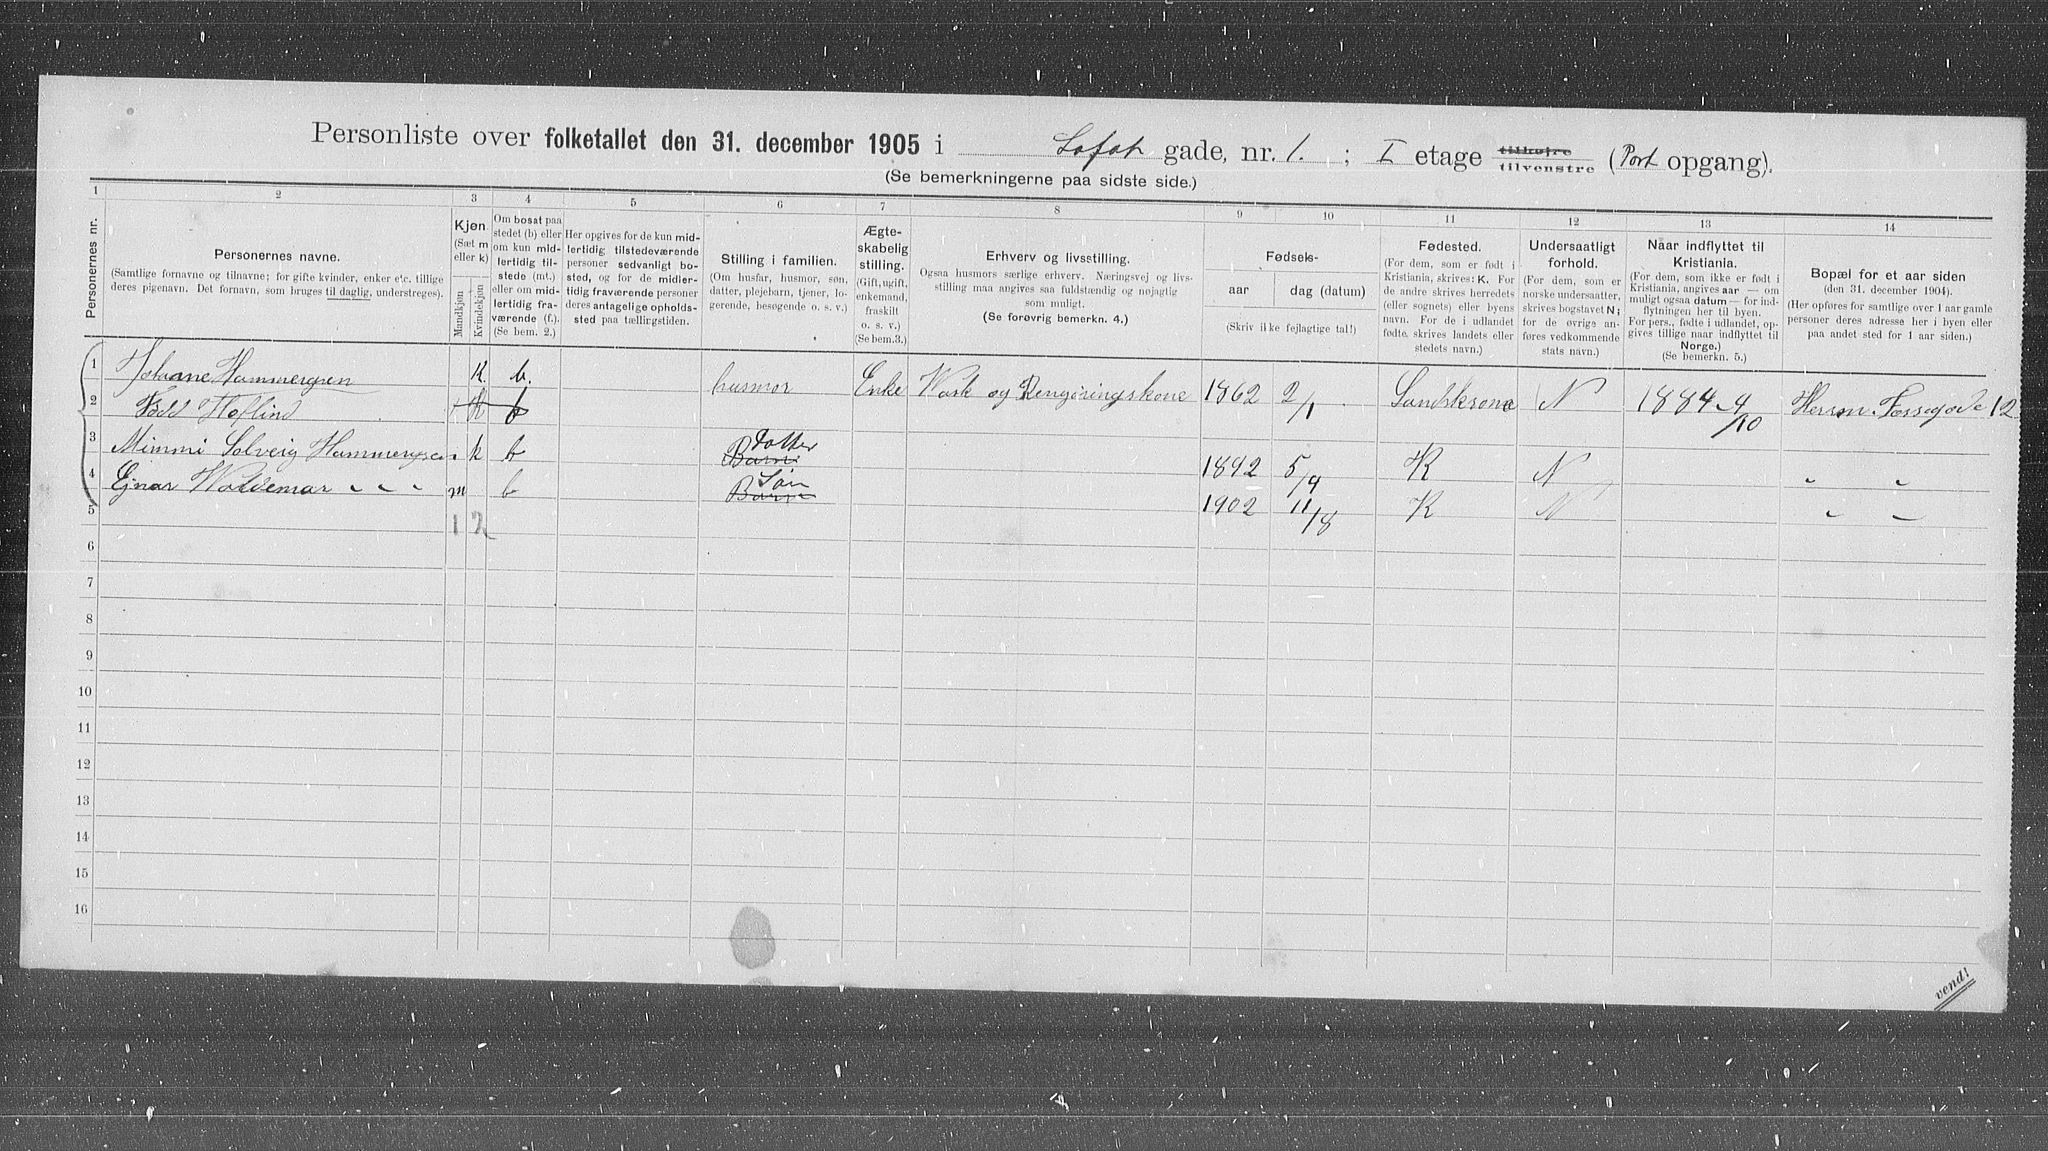 Personliste over folketallet den 31. december 1905 i Lofot gade, nr. 1. ; I etage tilhøjre tilvenstre (Port opgang).
(Se bemerkningerne paa sidste side.)
1 2 3 4 5 6 7 8 9 10 11 12 13 14
Personernes nr.
Personernes navne.
(Samtlige fornavne og tilnavne; for gifte kvinder, enker etc. tillige
deres pigenavn. Det fornavn, som bruges til daglig, understreges).
Kjøn.
(Sæt m
eller k)
Mandkjøn.
Kvindekjøn
Om bosat paa
stedet (b) eller
om kun mid-
lertidig til-
stede (mt.)
eller om mid-
lertidig fra-
værende (f.).
(Se bem. 2.)
Her opgives for de kun mid-
lertidig tilstedeværende
personer sedvanligt bo-
sted, og for de midler-
tidig fraværende personer
deres antagelige opholds-
sted paa tællingstiden.
Stilling i familien.
(Om husfar, husmor, søn,
datter, plejebarn, tjener, lo-
gerende, besøgende o. s. v.)
Ægte-
skabelig
stilling.
(Gift, ugift,
enkemand,
fraskilt
o. s. v.)
(Se bem.3.)
Erhverv og livsstilling.
Ogsaa husmors særlige erhverv. Næringsvej og livs-
stilling maa angives saa fuldstændig og nøjagtig
som muligt.
(Se forøvrig bemerkn. 4.)
Fødsels-
aar dag (datum)
(Skriv ikke fejlagtige tal!)
Fødested.
(For dem, som er født i
Kristiania, skrives: K. For
de andre skrives herredets
(eller sognets) eller byens
navn. For de i udlandet
fødte, skrives landets eller
stedets navn.)
Undersaatligt
forhold.
(For dem, som er
norske undersaatter,
skrives bogstavet N;
for de øvrige an-
føres vedkommende
stats navn.)
Naar indflyttet til
Kristiania.
(For dem, som ikke er født i
Kristiania, angives aar — om
muligt ogsaa datum — for ind-
flytningen her til byen.
For pers., fødte i udlandet, op-
gives tillige naar indflyttet til
Norge.)
(Se bemerkn. 5.)
Bopæl for et aar siden
(den 31. december 1904).
(Her opføres for samtlige over 1 aar gamle
personer deres adresse her i byen eller
paa andet sted for 1 aar siden.)
1 Johanne Hammergren K. b. husmor Enke Vask og Rengøringskone 1862 2/1 Landskrona N 1884 4/10 Herm. Fossegade 12
2 Född Hoflind K b
3 Mimmi Solveig Hammergren k b Barn Datter 1892 5/9 K N " "
4 Ejnar Waldemar " " " m b Barn Søn 1902 11/8 K N " "
5 1 2
6
7
8
9
10
11
12
13
14
15
16
vend!